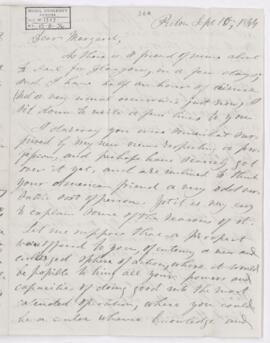 Sept 10, 1844
Dear Margaret,
As there is a friend of mine about
to sail for Glasgow, in a few days,
and I have half an hour of leisure
and a very usual occurrence just now, I
sit down to write a few lines to you.
I daresay you were somewhat sur-
prised by my new views respecting
and perhaps have hardly got
over it yet, and are inclined to think
your American friend a very
sort of person. Yet it is easy
to explain some of the reasons of it.
Let me suppose that a prospect
was offered to you of entering a new and
enlarged sphere of action, where it would
be possible to bring all your powers and
capacities of doing good into the most
extended operation, where you could
be a where knowledge and